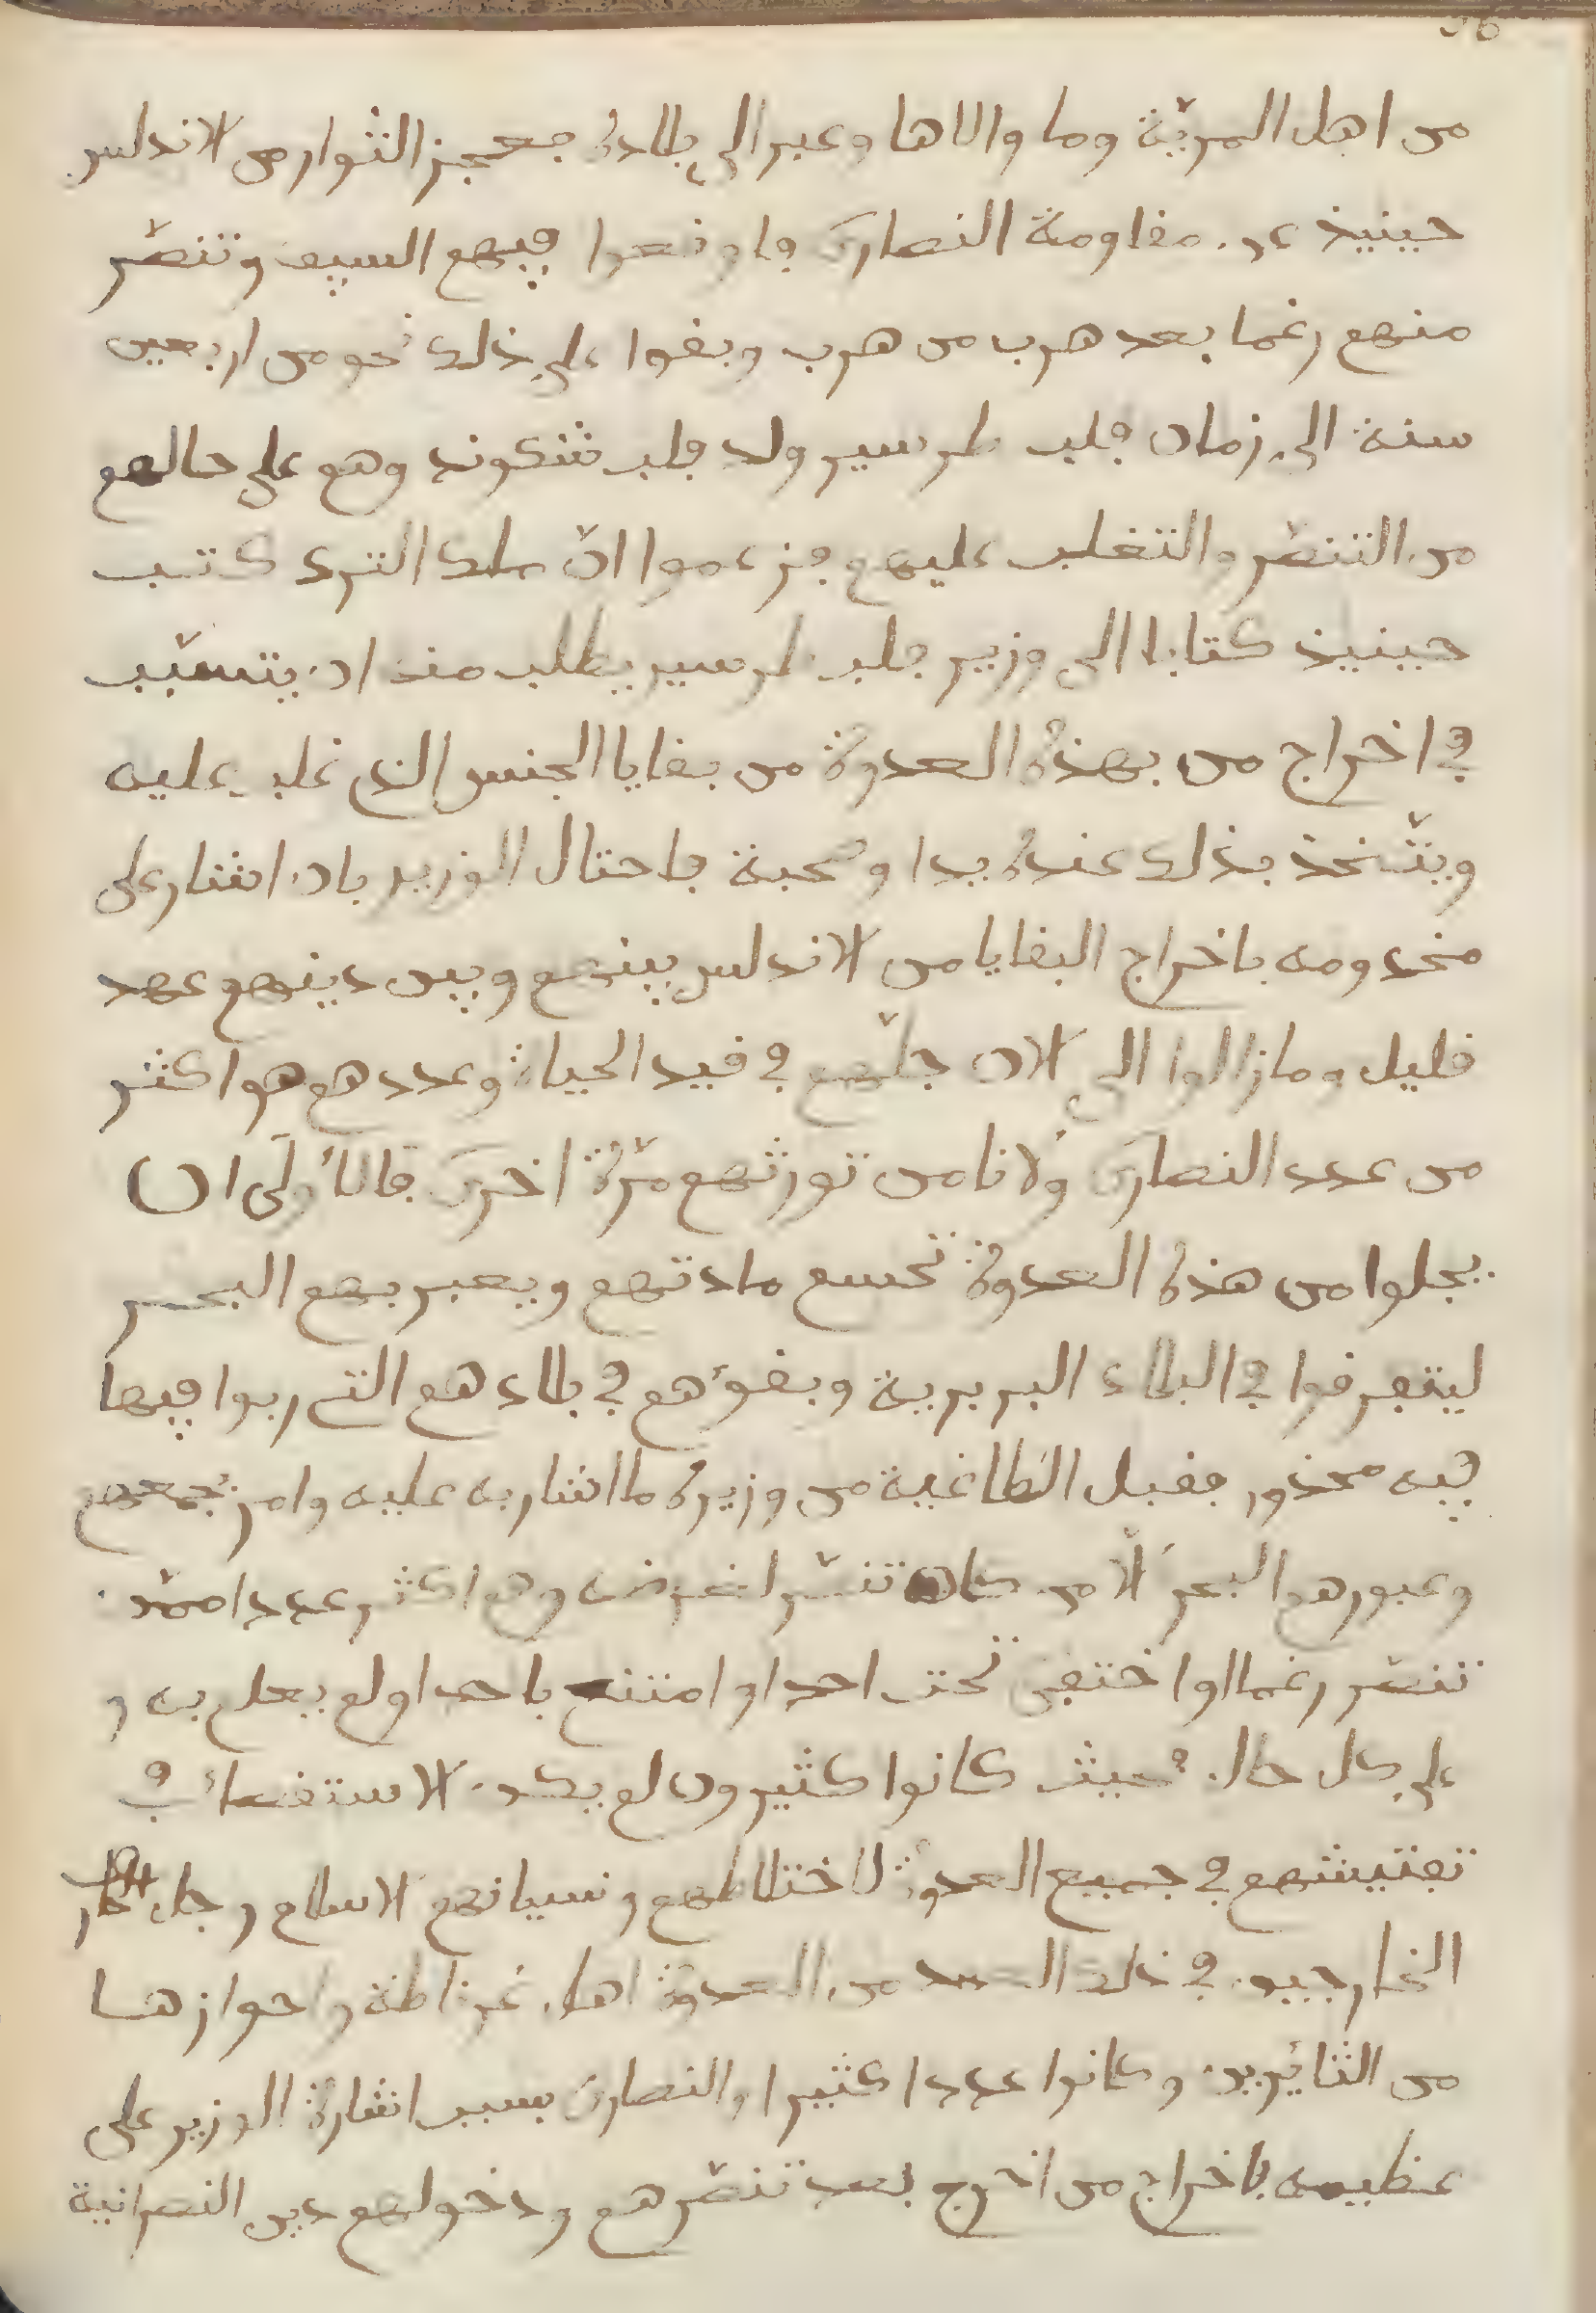 من اهل المريّة وما والاها وعبر الى بلاده فعجز الثوار من الاندلس
حينيذ عن مقاومة النصارى فاوقعوا فيهم السيف وتنصّر
منهم رغما بعد هرب من هرب وبقوا على ذلك نحو من اربعين
سنة الى زمان فلب طرسير ولد فلب شكوند وهم على حالهم
من التنصّر والتغلب عليهم فزعموا انّ ملك الترك كتب
حينيذ كتابا الى وزير فلب طرسير يطلب منه ان يتسبّب
في اخراج من بهذه العدوة من بقايا الجنس الذي غلب عليه
ويتّخذ بذلك عنده يدا ومحبة فاحتال الوزير بان اشار على
مخدومه باخراج البقايا من الاندلس بينهم وبين دينهم عهد
قليل ومازالوا الى الان جلّهم في قيد الحياة وعددهم هو اكثر
من عدد النصارى ولانامن ثورتهم مرّة اخرى فالأولى ان
يجلوا من هذه العدوة تحسم مادتهم ويعبر بهم البحر
ليتفرقوا في البلاد البربرية وبقوءهم في بلادهم التي ربوا فيها
فيه محذور فقبل الطاغية من وزيره ما اشار به عليه وامر بجمعهم
وعبورهم البحر الّا من كان تنصّر لغرضه وهم اكثر عددا ممّن
تنصّر رغما او اختفى تحت احد او امتنع باحد او لم يعلم به و
على كل حال فحيث كانوا كثيرون لم يكن الاستقصاء في
تفتيشهم في جميع العدوة لاختلاطهم ونسيانهم الاسلام وجل
الخارجين في ذلك العهد من العدوة اهل غرناطة واحوازها
من الثايرين وكانوا عددا كثيرا والنصارى بسبب اشارة الوزير على
عظيمه باخراج من اخرج بعد تنصّرهم ودخولهم دين النصرانية